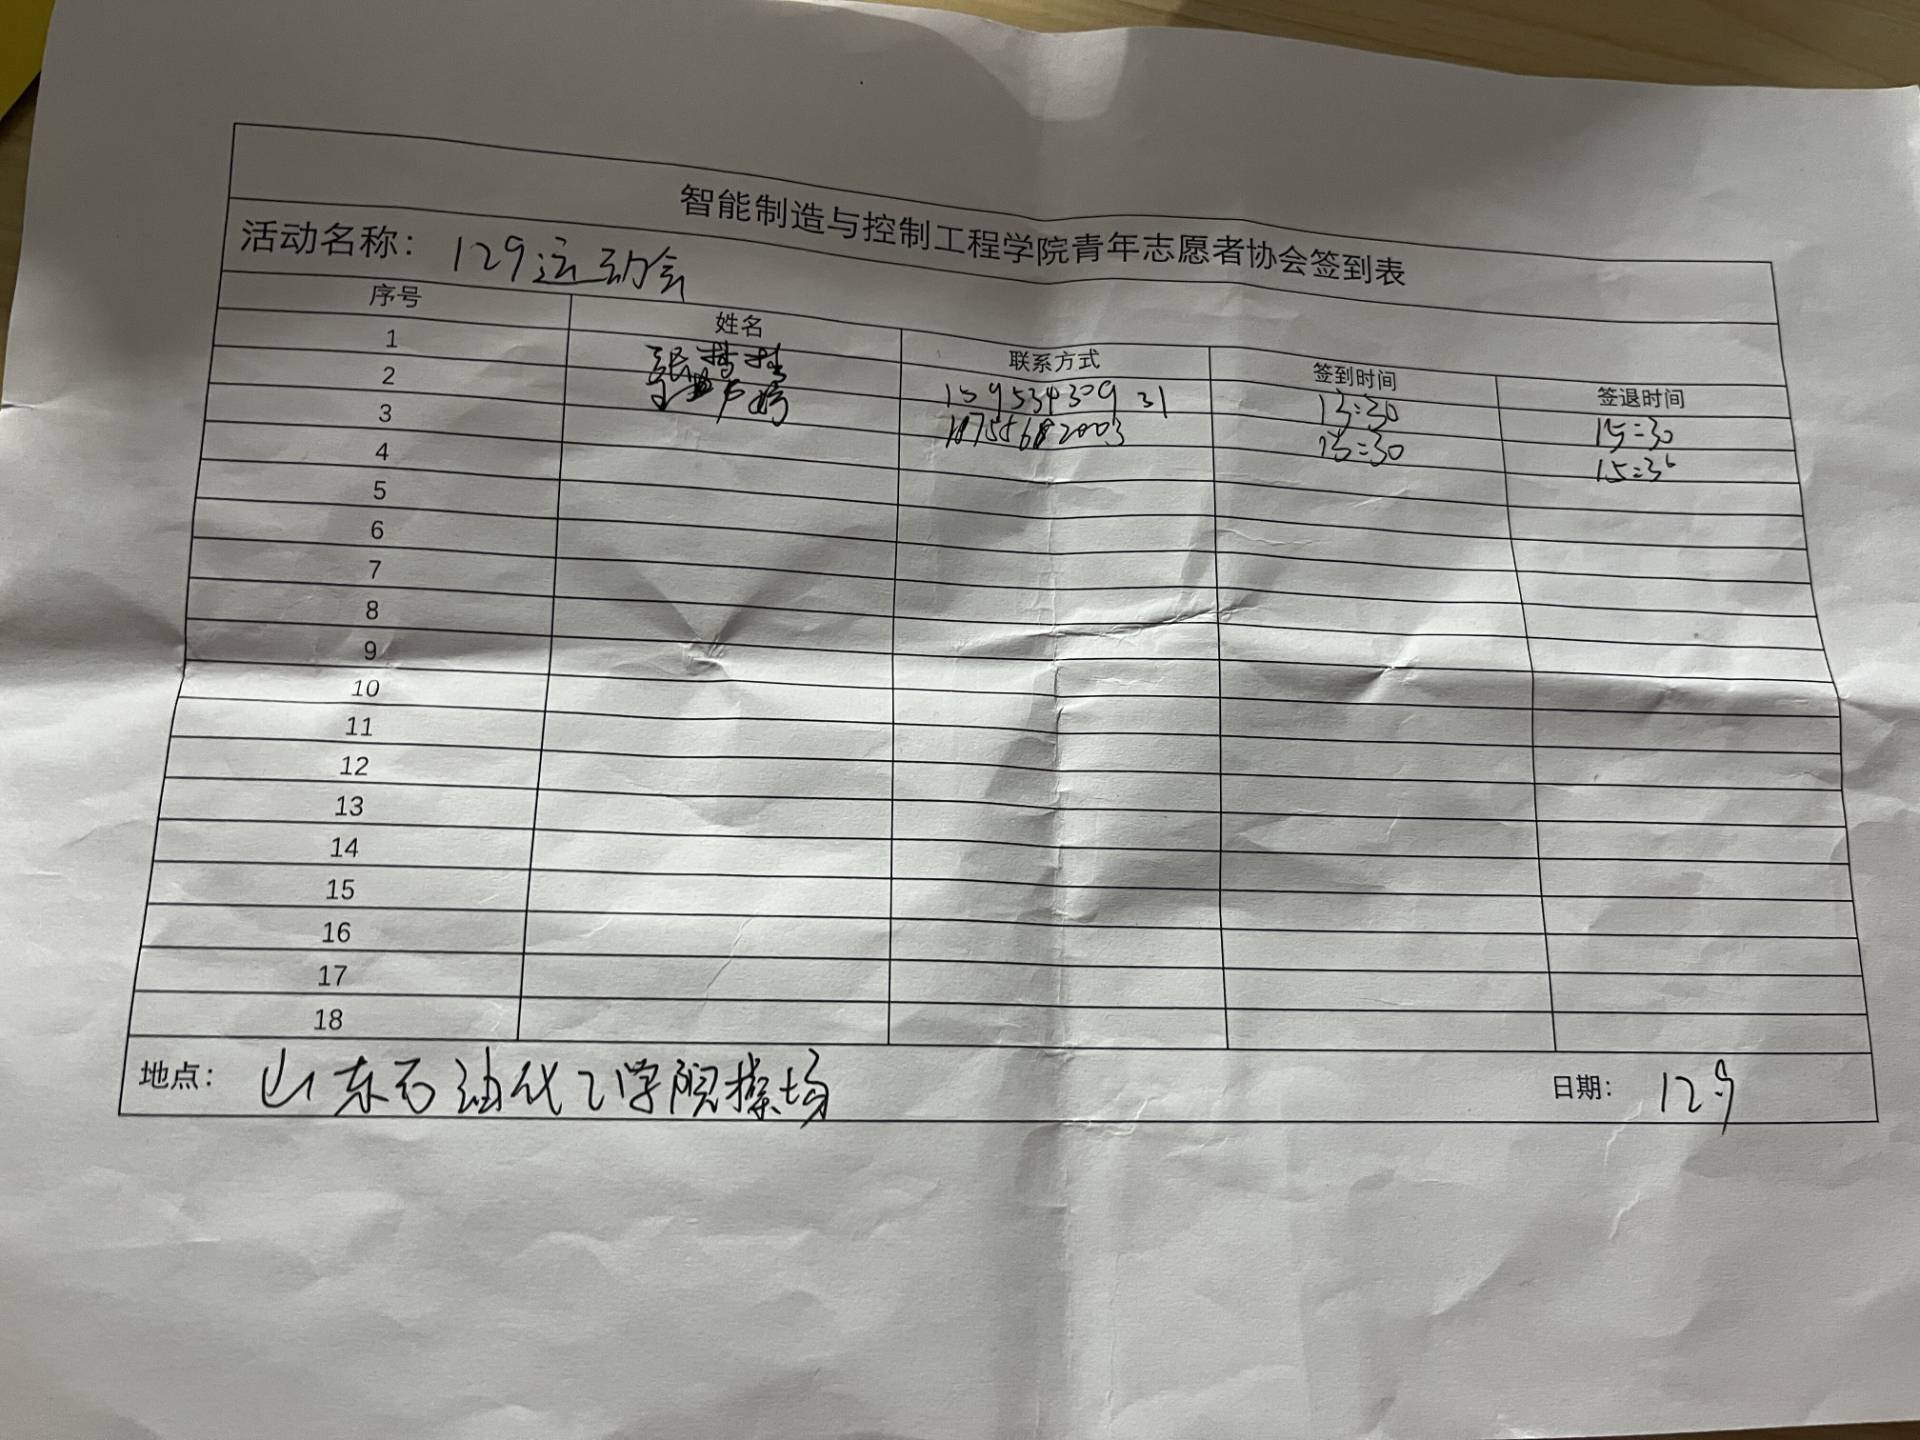 智能制造与控制工程学院青年志愿者协会签到表
活动名称: 129运动会
序号 姓名 联系方式 签到时间 签退时间
1 15953430931 13:30 15:30
2 13:30 15:30
3
4
5
6
7
8
9
10
11
12
13
14
15
16
17
18
地点: 山东石油化工学院操场 日期: 12.9